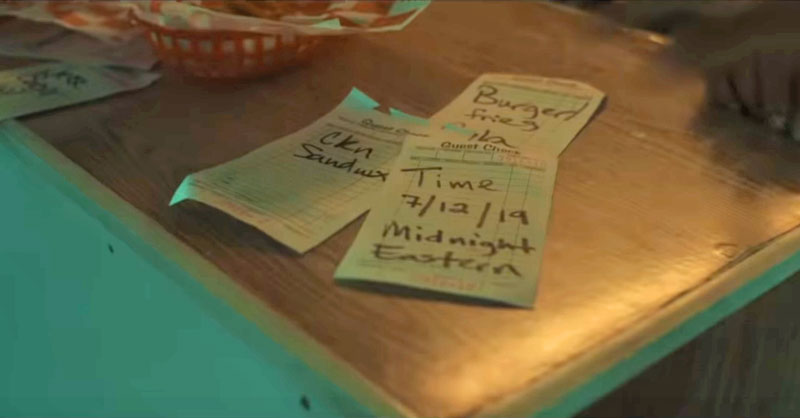 Burger/
fries
Guest Check
Ckn
Sandwx
Guest Check
Time
7/12/19
Midnight
Eastern